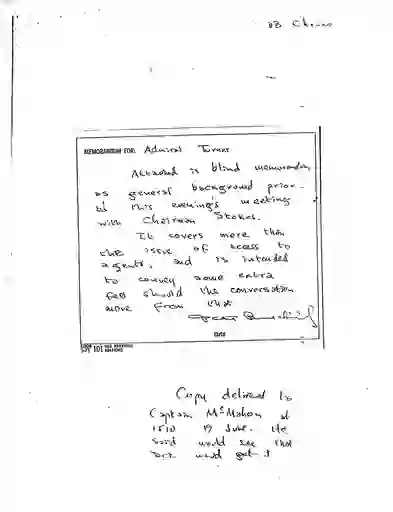 MEMORANDUM FOR: Admiral Turner
Attached is blind memorandum
as general background prior
to this evening's meeting
with Chairman Stokes.
It covers more than
the issue of access to
agents, and is intended
to convey some extra
feel should the conversation
move from that
DATE
101
Copy delivered to
Captain McMahon at
1510 19 June. He
said would see that
would get it